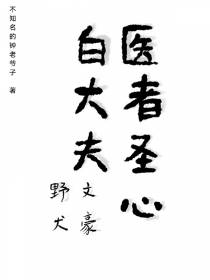 医者圣心
白大夫
文豪
野犬
不知名的钟老爷子 著